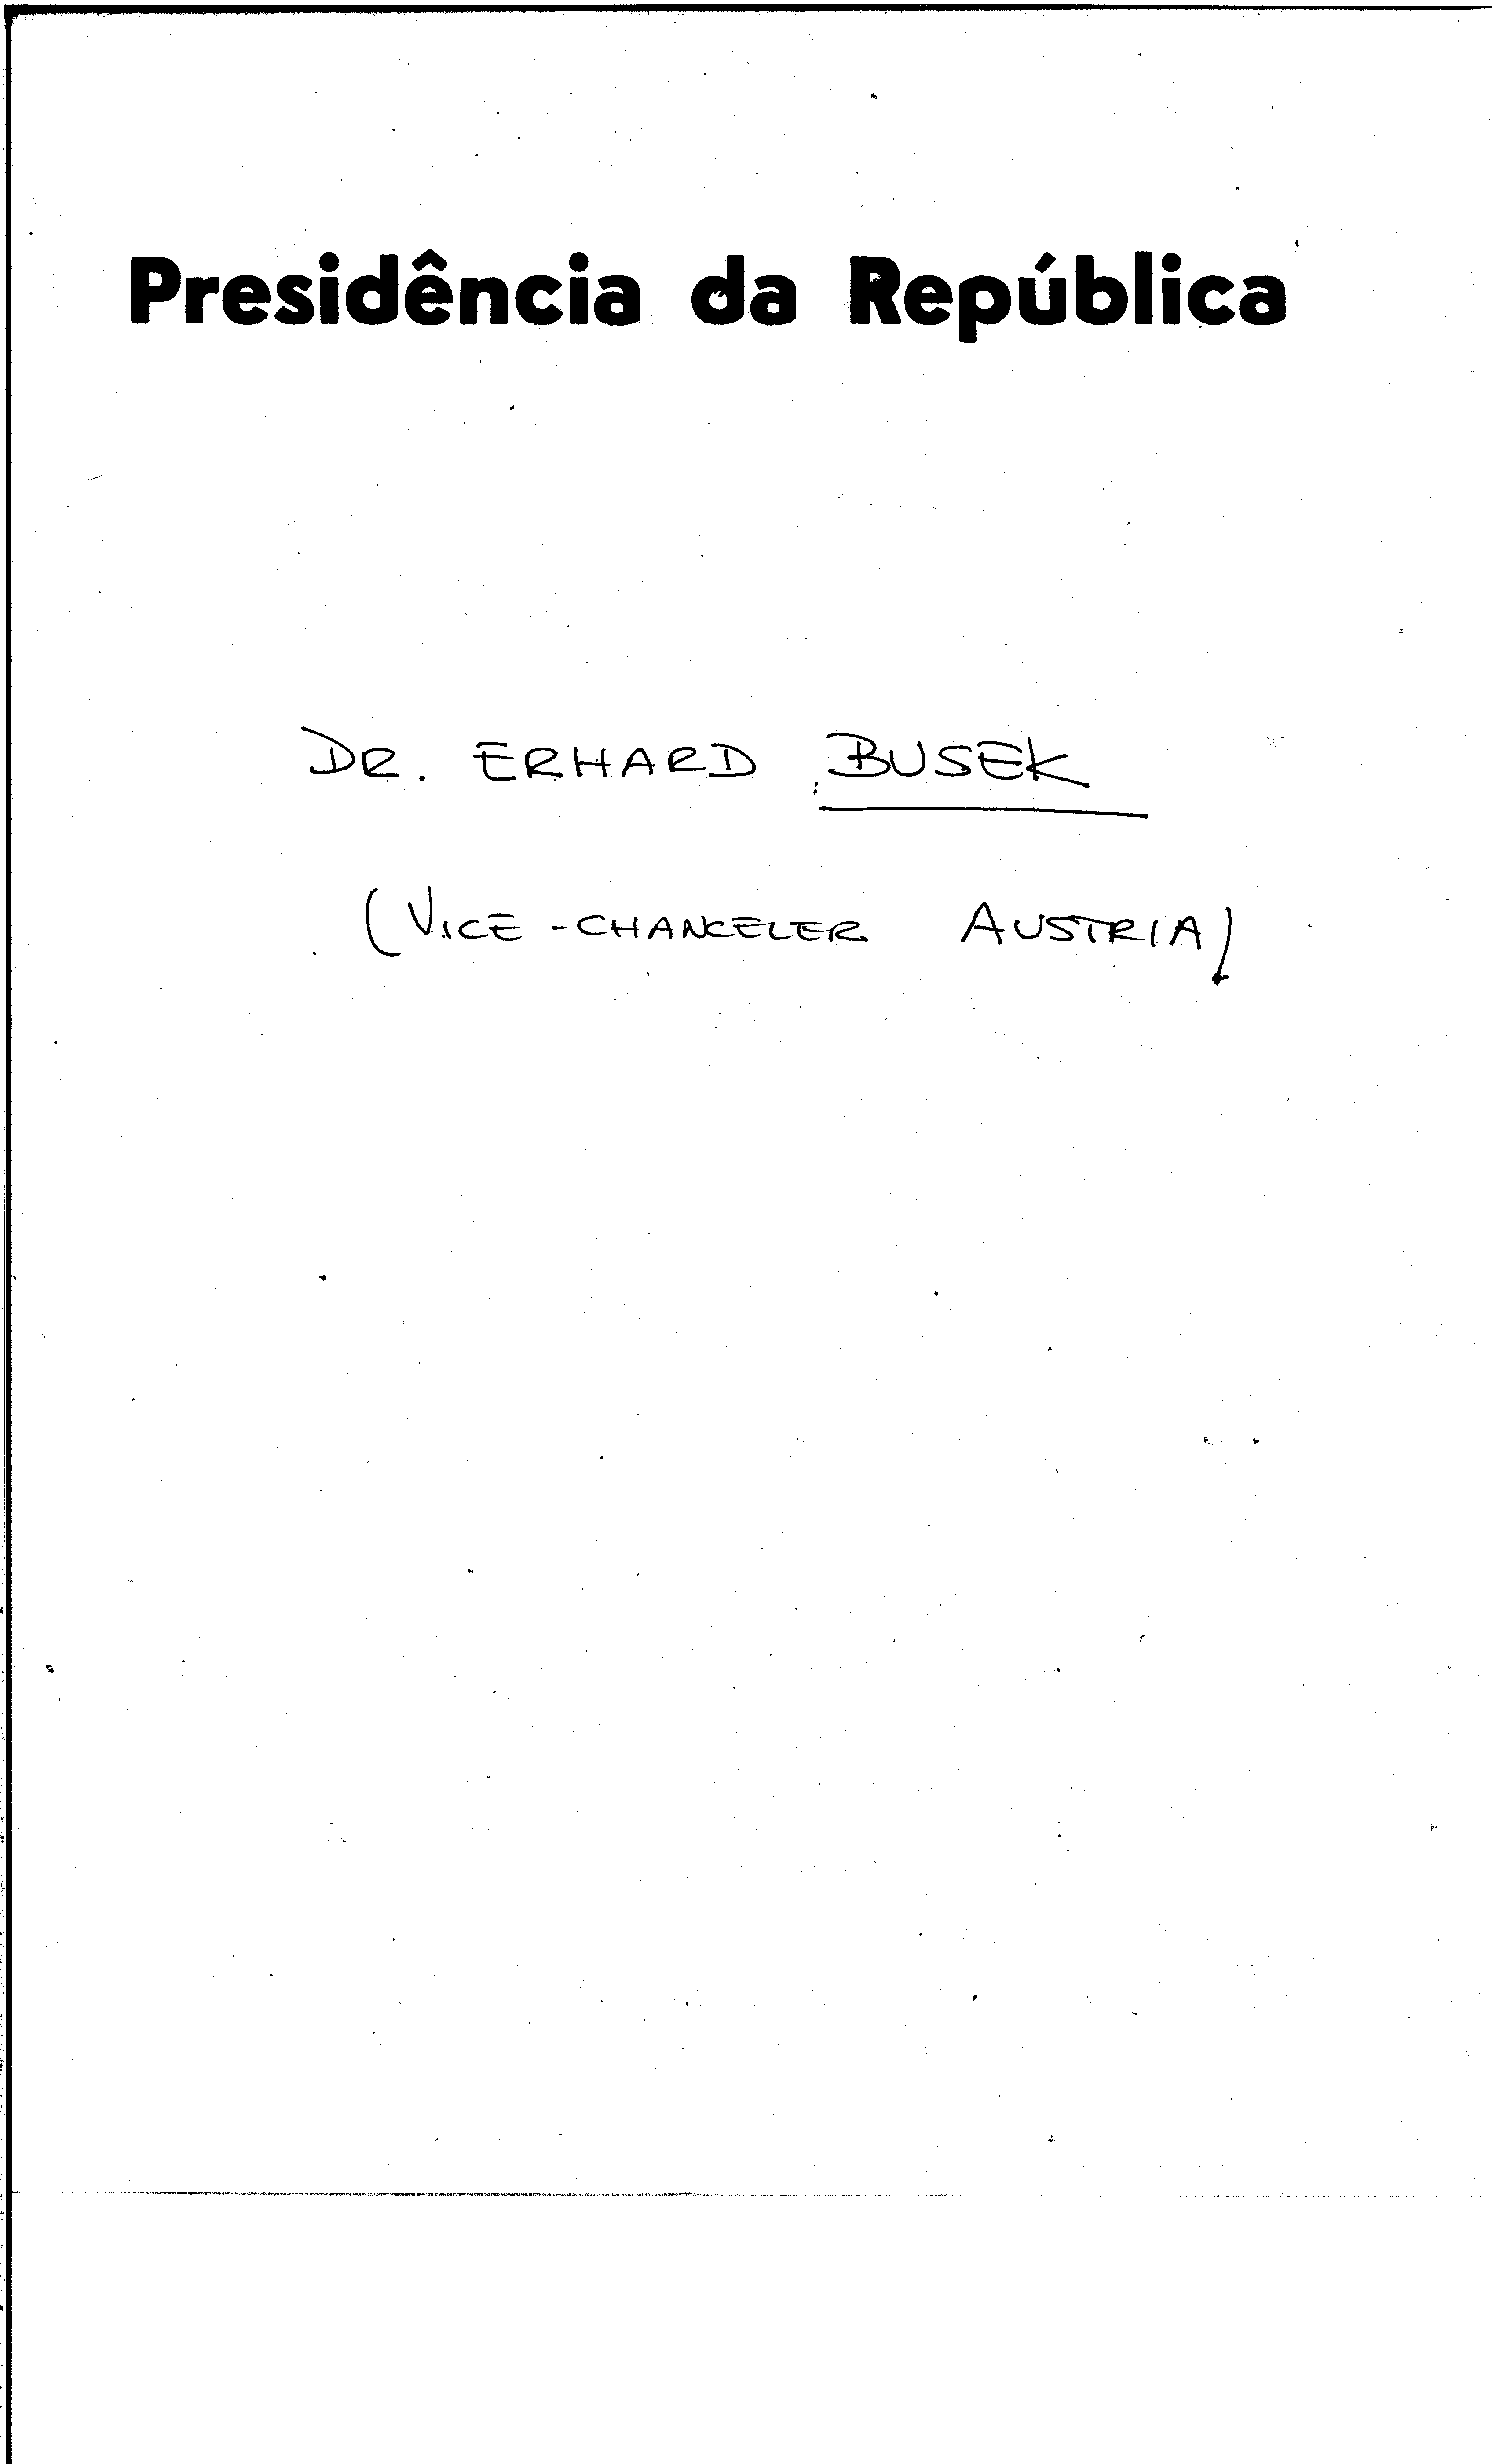 Presidência da República
DR. ERHARD BUSEK
(VICE-CHANCELER AUSTRIA)